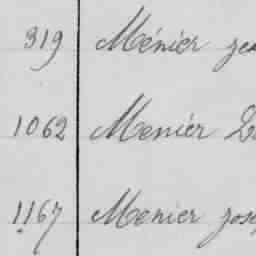 319 Ménier
1062 Menier
1167 Menier